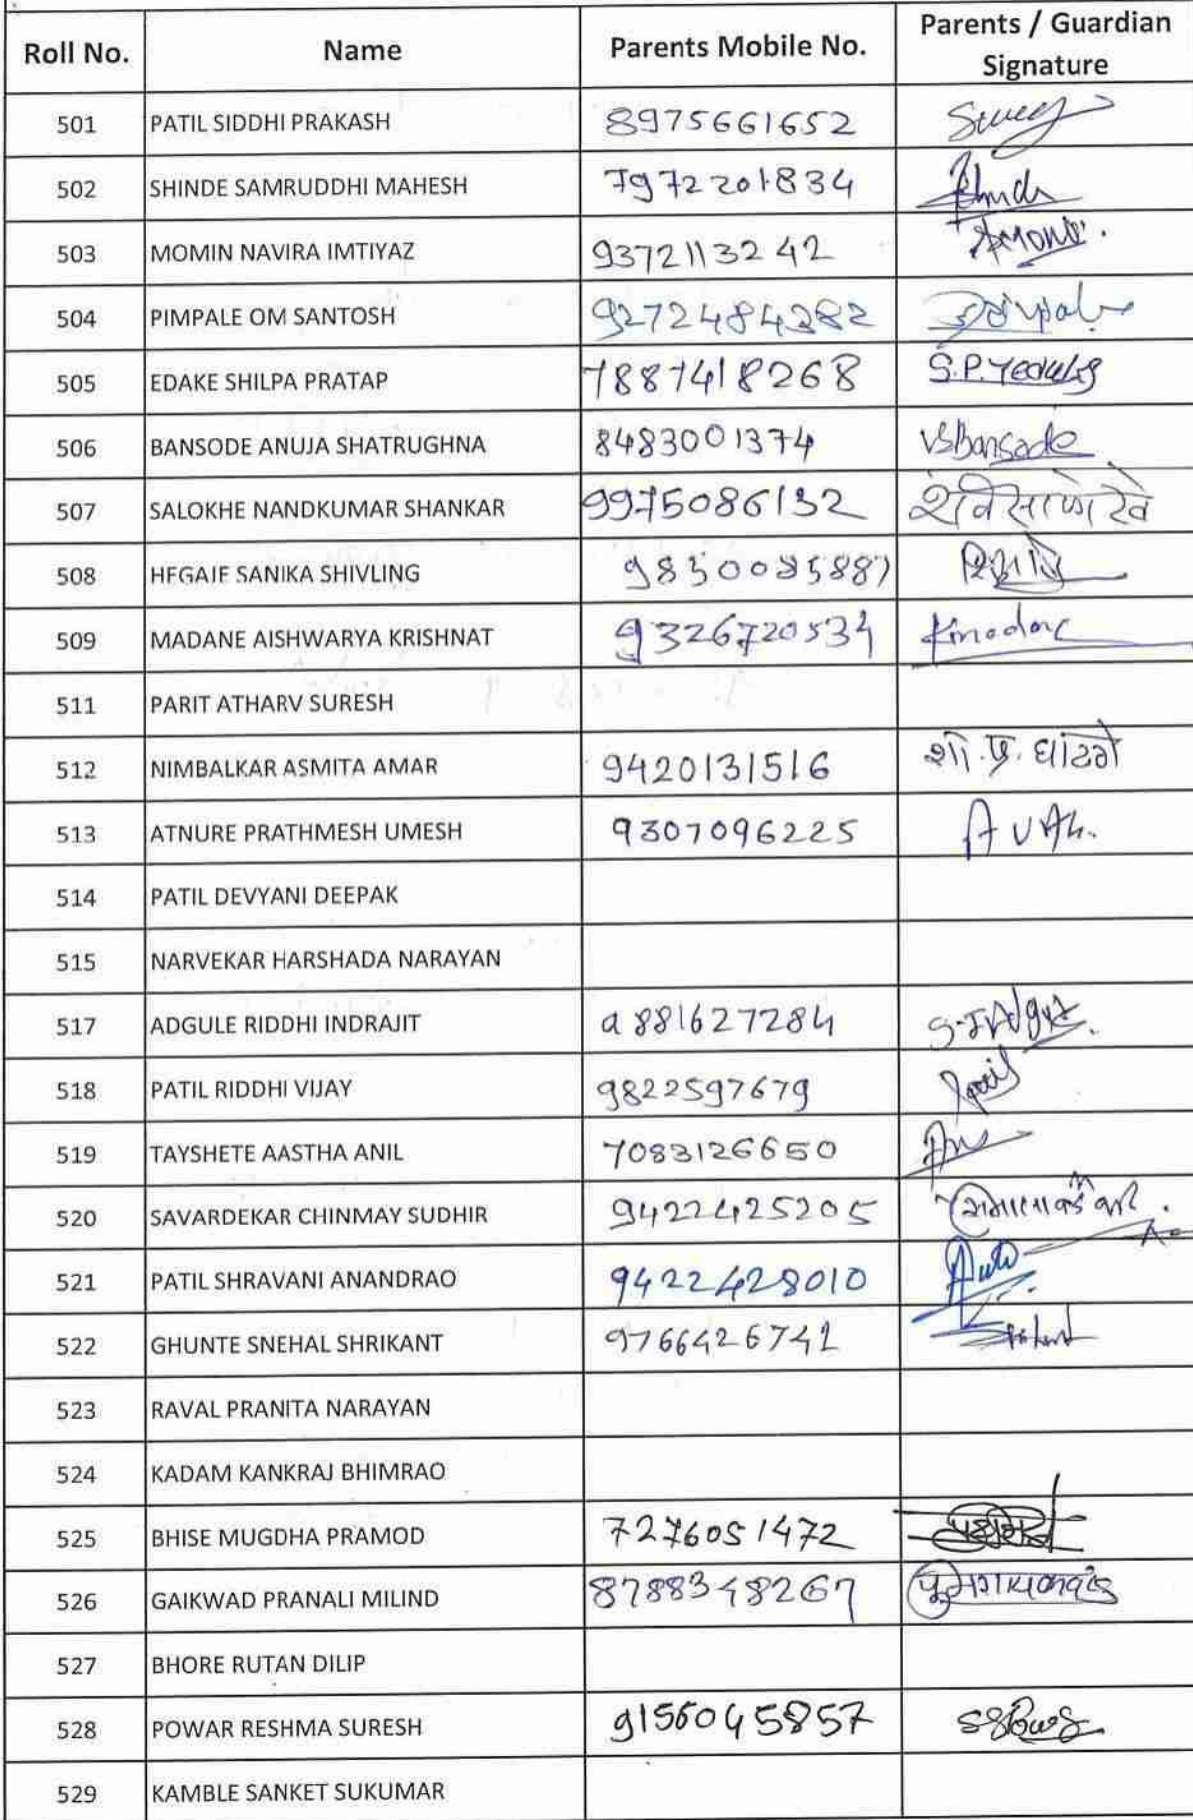 Roll No. Name Parents Mobile No. Parents / Guardian Signature
501 PATIL SIDDHI PRAKASH 8975661652
502 SHINDE SAMRUDDHI MAHESH 7972201834
503 MOMIN NAVIRA IMTIYAZ 9372113242
504 PIMPALE OM SANTOSH 9272484282
505 EDAKE SHILPA PRATAP 7887418268 S.P.
506 BANSODE ANUJA SHATRUGHNA 8483001374 VSBansode
507 SALOKHE NANDKUMAR SHANKAR 9975086132
508 HEGAIF SANIKA SHIVLING
509 MADANE AISHWARYA KRISHNAT 9326720534
511 PARIT ATHARV SURESH
512 NIMBALKAR ASMITA AMAR 9420131516 शो. प्र. घाटगे
513 ATNURE PRATHMESH UMESH 9307096225
514 PATIL DEVYANI DEEPAK
515 NARVEKAR HARSHADA NARAYAN
517 ADGULE RIDDHI INDRAJIT 9881627284
518 PATIL RIDDHI VIJAY 9822597679
519 TAYSHETE AASTHA ANIL 7083126650
520 SAVARDEKAR CHINMAY SUDHIR 9422425205
521 PATIL SHRAVANI ANANDRAO 9422428010
522 GHUNTE SNEHAL SHRIKANT 9766426741
523 RAVAL PRANITA NARAYAN
524 KADAM KANKRAJ BHIMRAO
525 BHISE MUGDHA PRAMOD 7276051472
526 GAIKWAD PRANALI MILIND 8788348267
527 BHORE RUTAN DILIP
528 POWAR RESHMA SURESH 9156045857
529 KAMBLE SANKET SUKUMAR